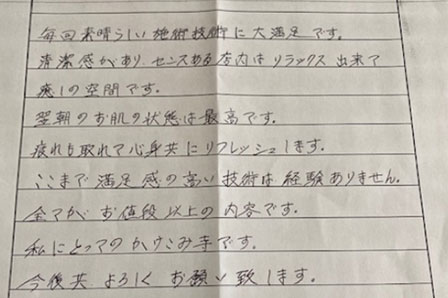 毎回素晴らしい施術技術に大満足です。
清潔感があり、センスある店内はリラックス出来て
癒しの空間です。
翌朝のお肌の状態は最高です。
疲れも取れて心身共にリフレッシュします。
ここまで満足感の高い技術は経験ありません。
全てがお値段以上の内容です。
私にとってのかけこみ寺です。
今後共よろしくお願い致します。